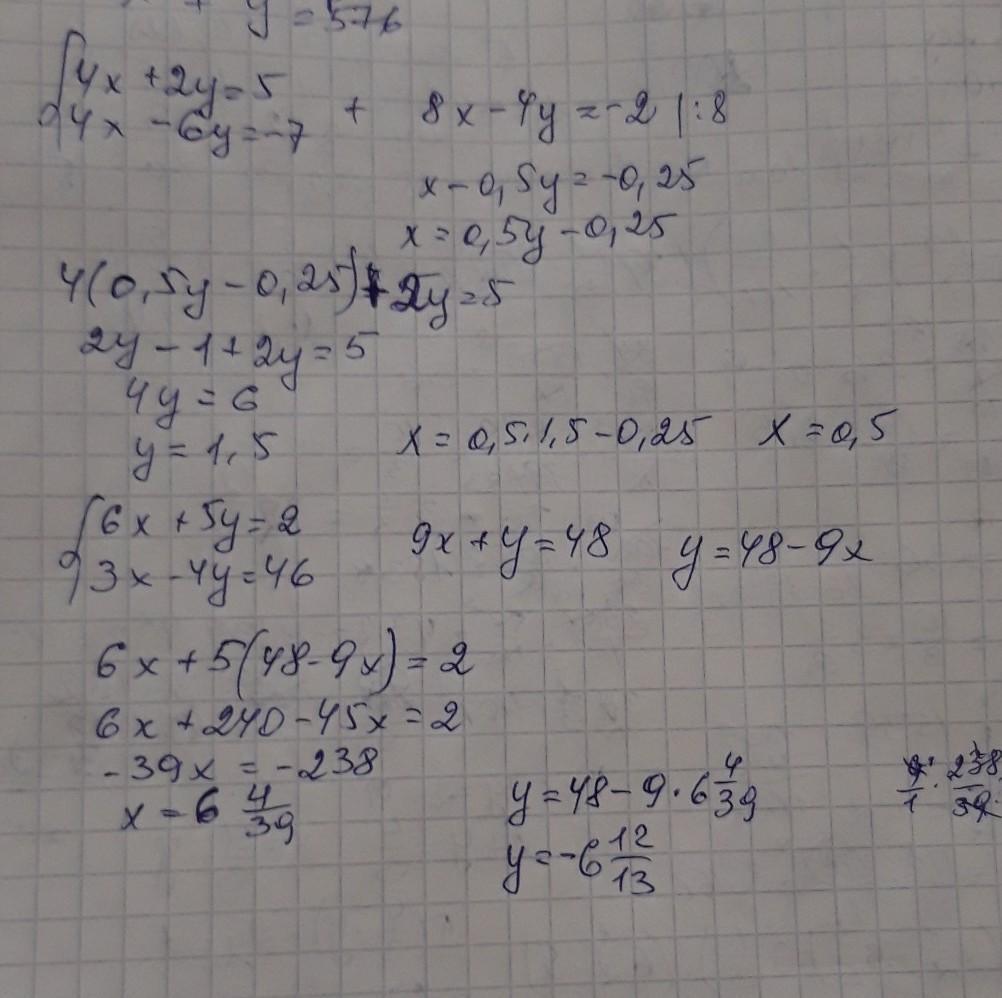 y = 576
4x + 2y = 5
4x - 6y = -7 + 8x - 4y = -2 | :8
x - 0,5y = -0,25
x = 0,5y - 0,25
4(0,5y - 0,25) + 2y = 5
2y - 1 + 2y = 5
4y = 6
y = 1,5 x = 0,5·1,5 - 0,25 x = 0,5
6x + 5y = 2
3x - 4y = 46 9x + y = 48 y = 48 - 9x
6x + 5(48 - 9x) = 2
6x + 240 - 45x = 2
-39x = -238
x = 6 4/39 y = 48 - 9·6 4/39 9/1 · 238/39
y = -6 12/13